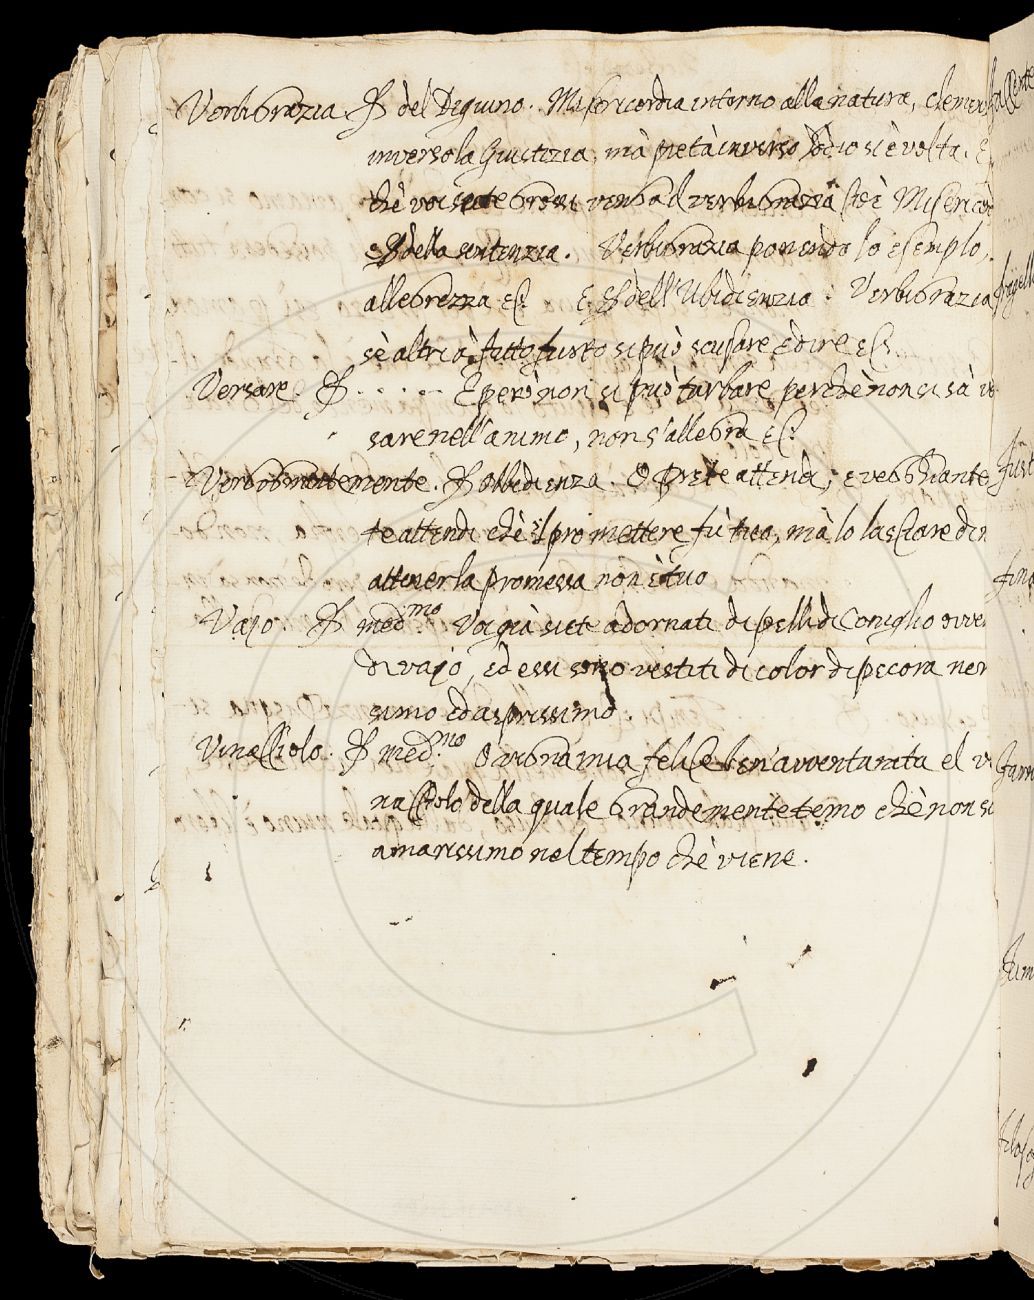 Verbigrazia. P. del Digiuno. Misericordia intorno alla natura, clemen
inverso la Giustizia, mà pietà inverso l'odio si è volta. E
chè voi siate grossi venga al verbigrazia cioè Misericor
P. della sentenzia. Verbigrazia ponendo lo esemplo,
allegrezza ec. E P. dell'Ubidienzia. Verbigrazia
sè altri à fatto furto si può scusare è dire ec.
Versare. P. . . . . E però non si può turbare perchè non si sà ver
sare nell'animo, non s'allegra ec.
P. Obbedienza. O Prete attendi, e vegghiante
te attendi chè il promettere fù tuo, mà lo lasciare di n
attener la promessa non è tuo
Vajo. P. med.mo Voi quà siete adornati di pelli di Coniglio ovve
di vajo, ed essi sono vestiti di color di pecora ner
simo ed asprissimo.
Vinacciolo. P. med.mo O vigna mia felice ben'avventurata el vi
nacciolo della quale grandemente temo chè non si
amarissimo nel tempo chè viene.